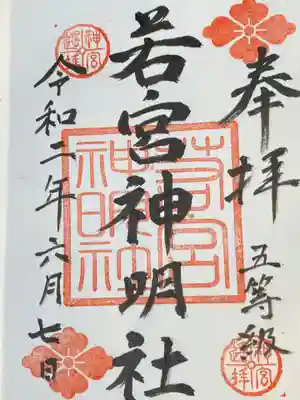 奉拝
五等級
若宮神明社
若宮
神明社
令和二年六月七日
神宮
遥拝
神宮
遥拝